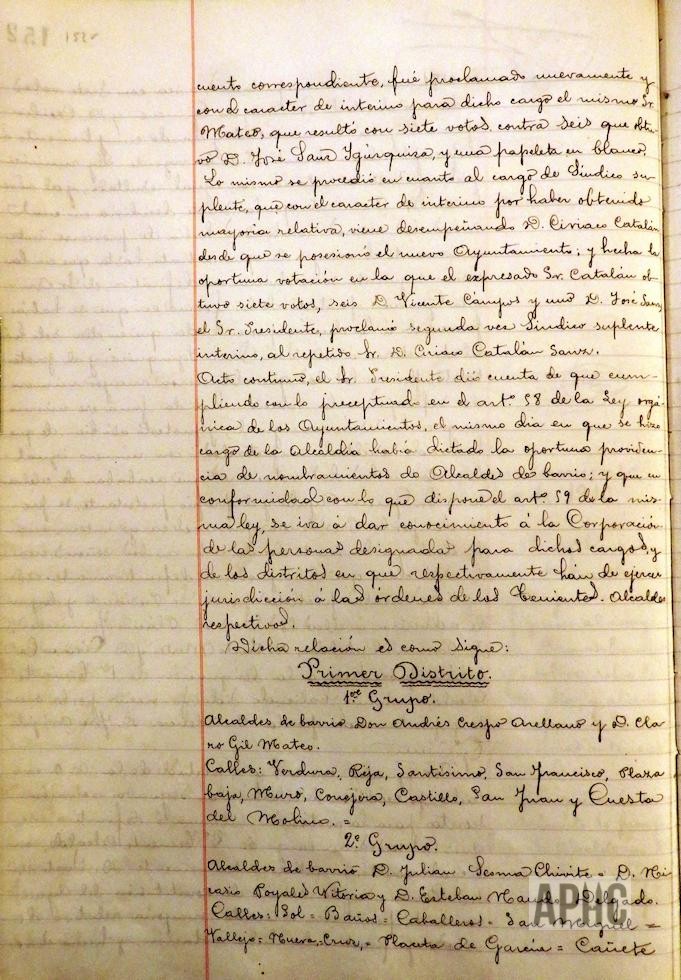 cuento correspondiente, fué proclamado nuevamente y
con el caracter de interino para dicho cargo el mismo Sr.
Mateo, que resultó con siete votos, contra seis que obtu-
vo D. José Sanz Ygúrquiza, y una papeleta en blanco.
Lo mismo se procedió en cuanto al cargo de Síndico su-
plente, que con el caracter de interino por haber obtenido
mayoria relativa, viene desempeñando D. Ciriaco Catalán
desde que se posesionó el nuevo Ayuntamiento; y hecha la
oportuna votación en la que el expresado Sr. Catalán ob-
tuvo siete votos, seis D. Vicente Campos y uno D. José Sanz,
el Sr. Presidente, proclamó segunda vez Síndico suplente
interino, al repetido Sr. D. Ciriaco Catalán Sanz.
Acto continuo, el Sr. Presidente dió cuenta de que cum-
pliendo con lo preceptuado en el artº. 58 de la Ley orgá-
nica de los Ayuntamientos, el mismo dia en que se hizo
cargo de la Alcaldía había dictado la oportuna providen-
cia de nombramientos de Alcaldes de barrio; y que en
conformidad con lo que dispone el artº 59 de la mis-
ma ley, se iva á dar conocimiento á la Corporación
de las personas designadas para dichos cargos, y
de los distritos en que respectivamente hán de ejercer
jurisdicción á las órdenes de los Tenientes Alcaldes
respectivos.
Dicha relación es como sigue:
Primer Distrito.
1er Grupo.
Alcaldes de barrio Don Andrés Crespo Arellano y D. Cla-
ro Gil Mateo.
Calles: Verdura, Rija, Santísimo, San Francisco, Plaza
baja, Muro, Conejera, Castillo, San Juan y Cuesta
del Molino. =
2º Grupo.
Alcaldes de barrio D. Julian Sesma Chivite = D. Ni-
casio Poyales Vitoria y D. Esteban Delgado.
Calles: Sol = Baños = Caballeros = San Miguel =
Vallejo = Nueva = Cruz, = Placeta de García = Cañete
APHC